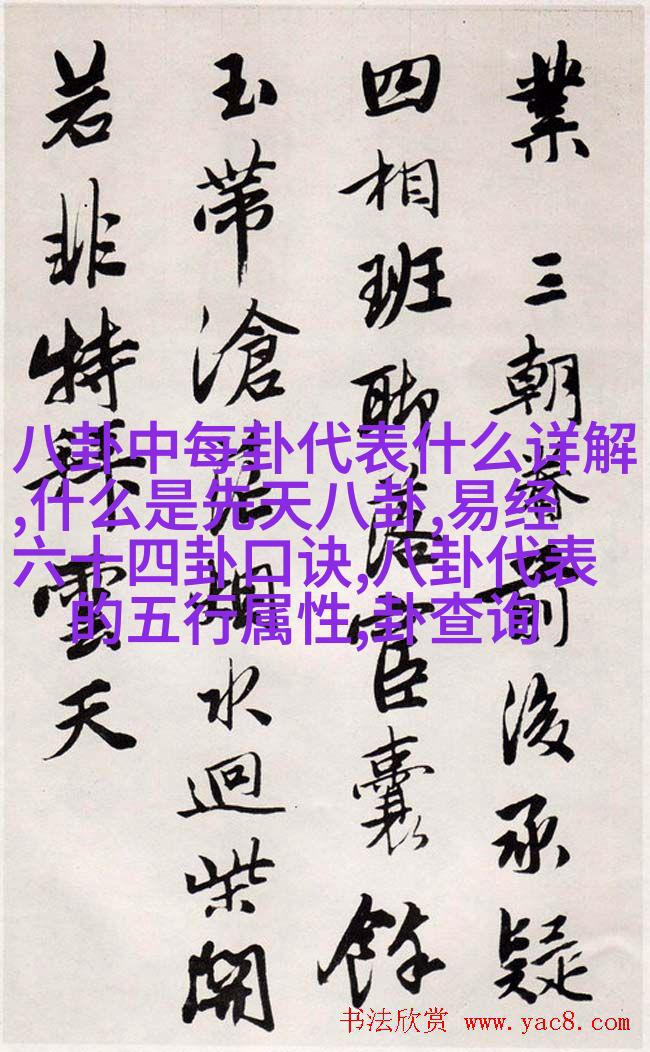 業 三朝前後承疑
四相班聊落宦囊餘
玉帶滄水迴柴開
若非特異雲天
八卦中每卦代表什么详解
,什么是先天八卦,易经
六十四卦口诀,八卦代表
的五行属性,卦查询
书法欣赏 www.yac8.com